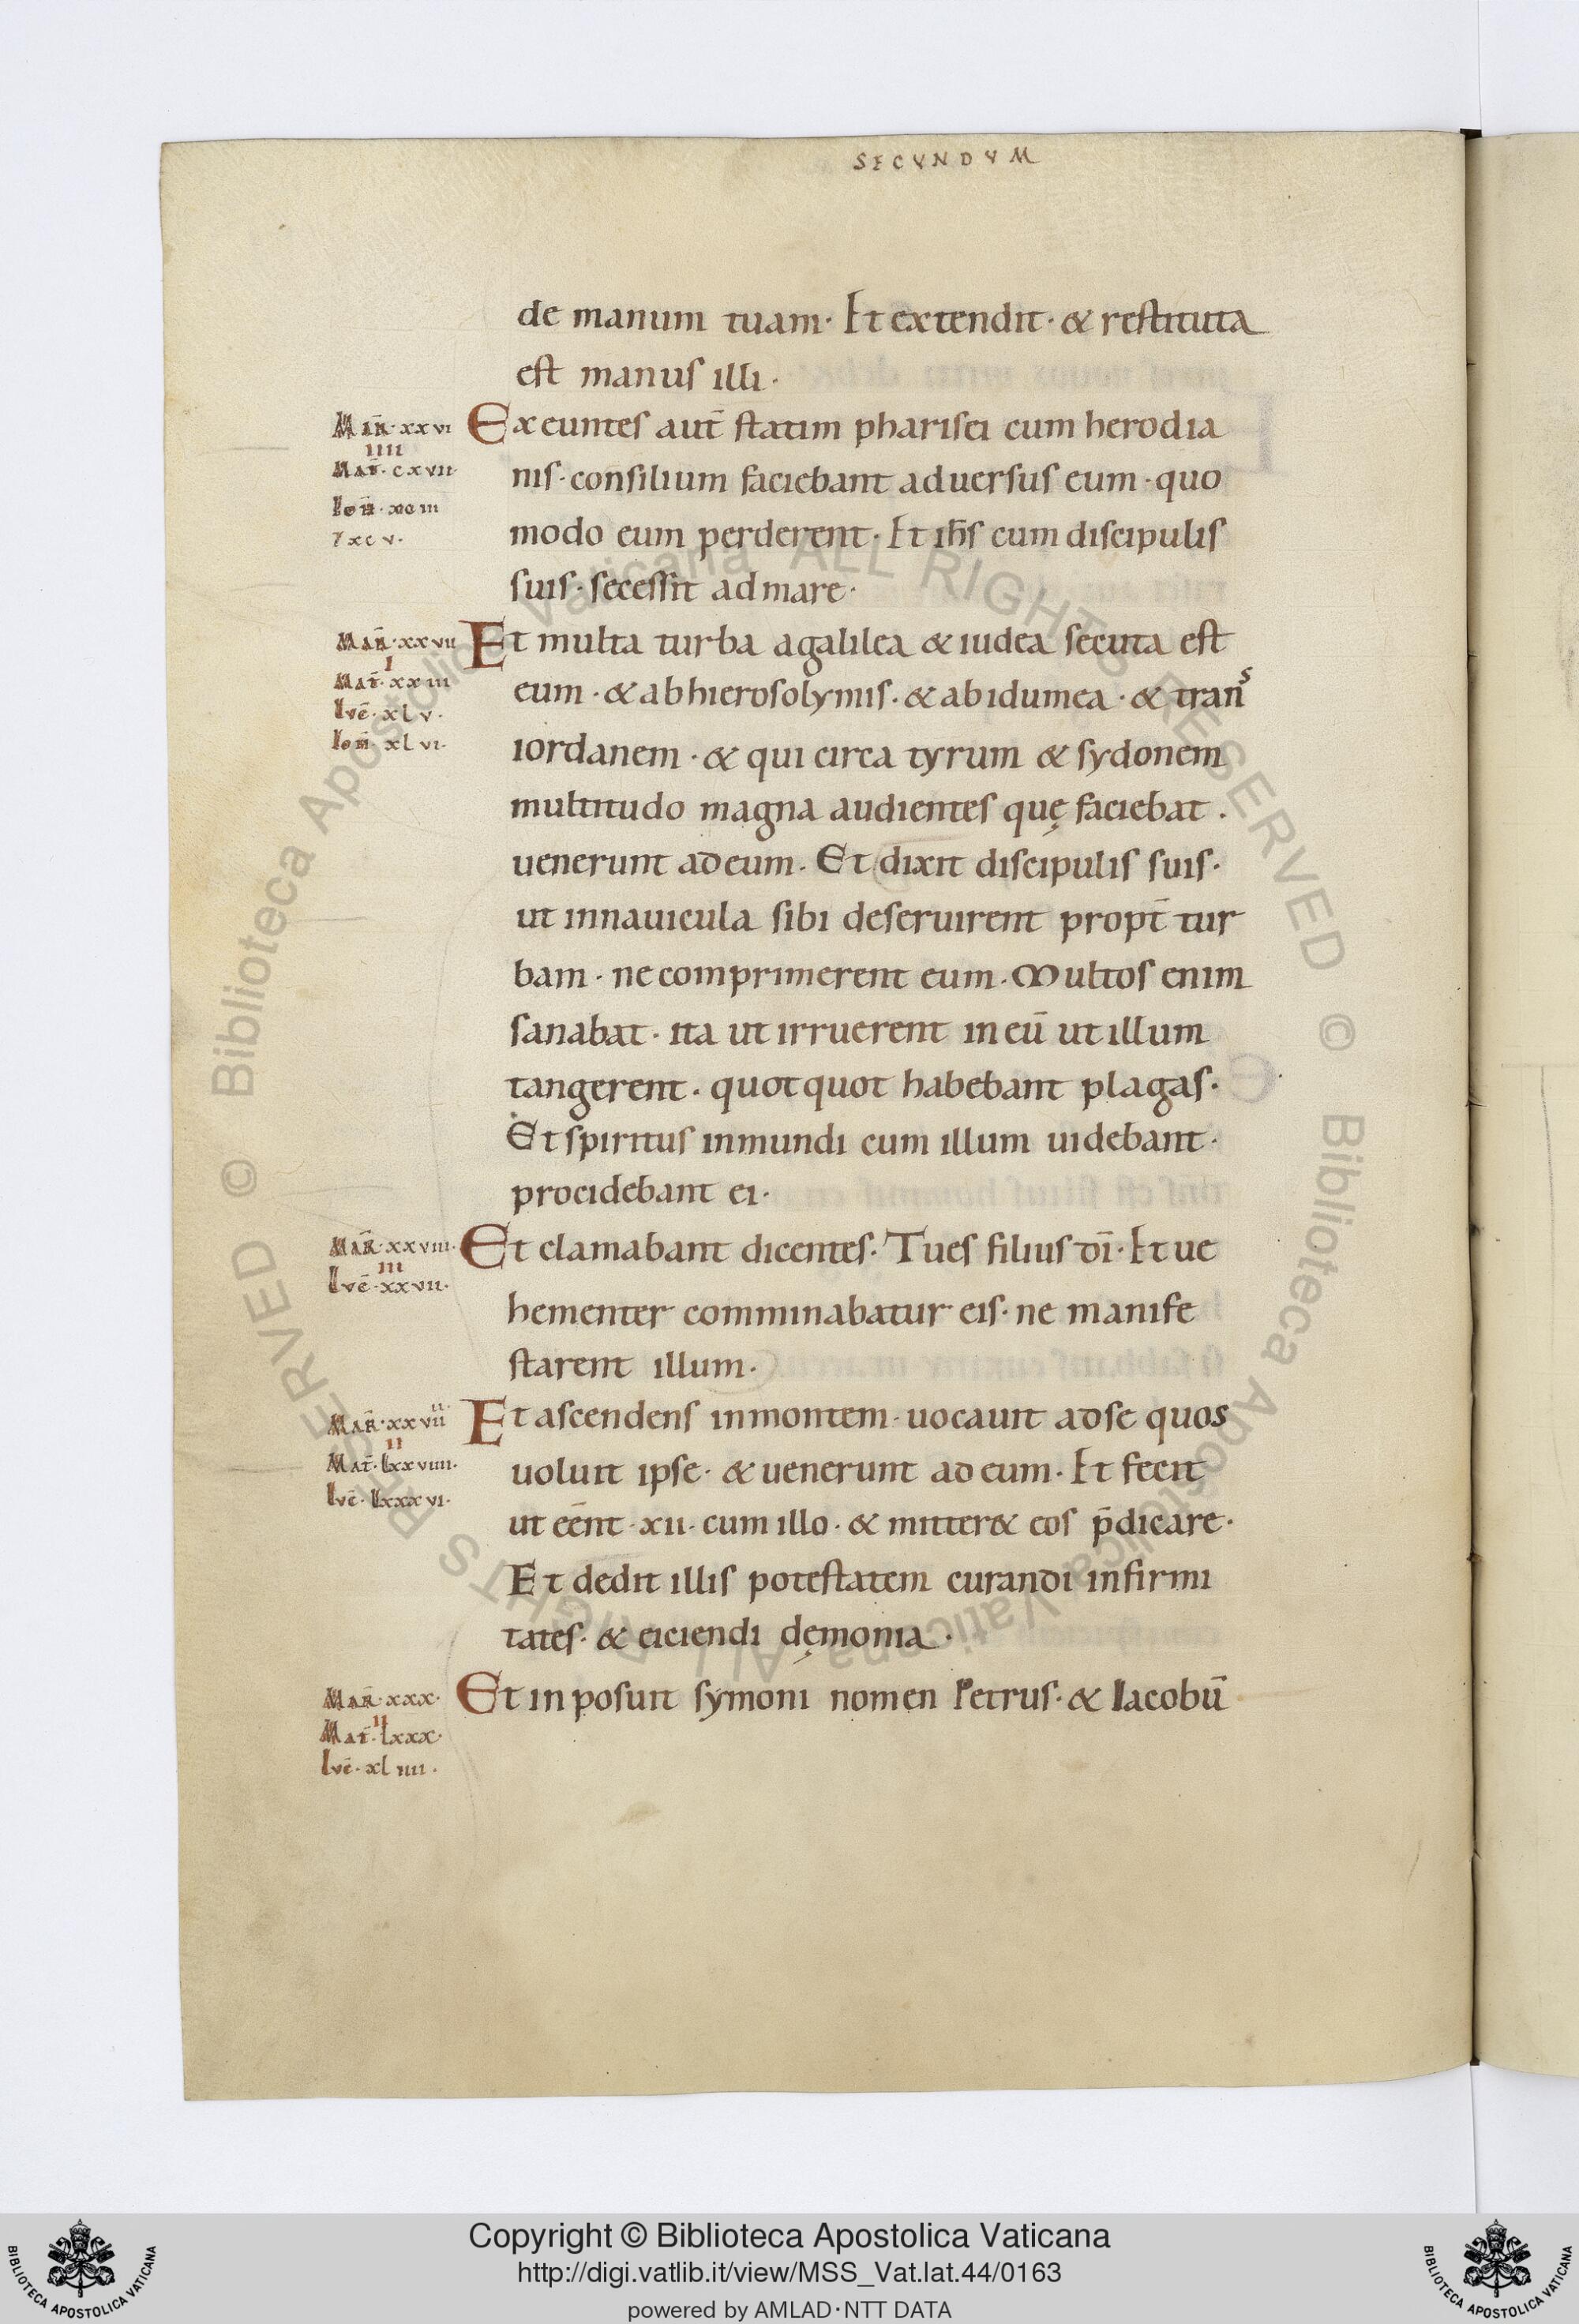 SECVNDVM
de manum tuam· Et extendit· & restituta
est manus illi·
Mar̄·xxvi
iiii
Mat̄·cxvii·
Ioħ·xciii
7xcv·
Exeuntes aut̄ statim pharisei cum herodia
nis· consilium faciebant aduersus eum· quo
modo eum perderent· Et ih̄s cum discipulis
suis· secessit ad mare·
Mar̄·xxvii
I
Mat̄·xxiii
Lvc̄·xlv·
Ioħ·xlvi·
Et multa turba a galilea & iudea secuta est
eum· & ab hierosolymis· & ab idumea· & trans
iordanem· & qui circa tyrum & sydonem
multitudo magna audientes quę faciebat·
uenerunt ad eum· Et dixit discipulis suis·
ut in nauicula sibi deseruirent propt̄ tur
bam· ne comprimerent eum· Multos enim
sanabat· ita ut irruerent in eū ut illum
tangerent· quotquot habebant plagas·
Et spiritus inmundi cum illum uidebant·
procidebant ei·
Mar̄·xxviii·
iii
Lvc̄·xxvii·
Et clamabant dicentes· Tu es filius dī· Et ue
hementer comminabatur eis· ne manife
starent illum·
Mar̄·xxviiii
ii
Mat̄·lxxviiii·
Lvc̄·lxxxvi·
Et ascendens in montem· uocauit ad se quos
uoluit ipse· & uenerunt ad eum· Et fecit
ut eēnt ·xii· cum illo· & mitter& eos p̄dicare·
Et dedit illis potestatem curandi infirmi
tates· & eiciendi dęmonia·
Mar̄·xxx·
ii
Mat̄·lxxx·
Lvc̄·xliiii·
Et inposuit symoni nomen Petrus· & Iacobū
© Biblioteca Apostolica Vaticana ALL RIGHTS RESERVED © Biblioteca Apostolica Vaticana ALL RIGHTS RESERVED
Copyright © Biblioteca Apostolica Vaticana
http://digi.vatlib.it/view/MSS_Vat.lat.44/0163
powered by AMLAD·NTT DATA
BIBLIOTECA APOSTOLICA VATICANA
BIBLIOTECA APOSTOLICA VATICANA